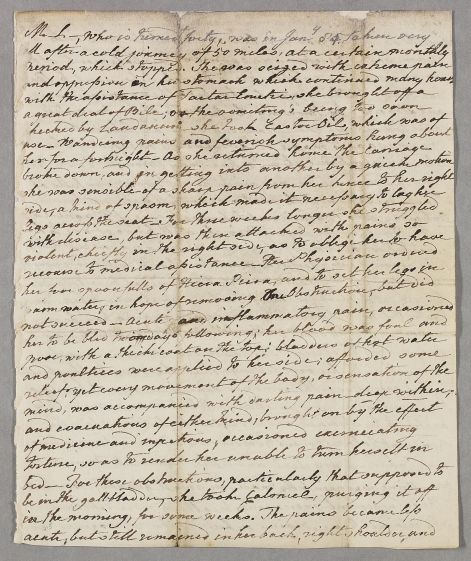 M. L-, who is turned forty, was in Jany. 84, taken very
ill after a cold journey of 50 miles, at a certain monthly
period, which stopp'd. She was seized with extreme pain
and oppression in her stomach which continued many hours,
with the assistance of Tartar Emetic, she brought off a
great deal of Bile; the vomiting's being too soon
checked by Laudanum she took Castor Oil, which was of
use - Wandering pains and feverish symptoms hung about
her for a fortnight. As she returned home the carriage
broke down, and on getting into another by a quick motion
she was sensible of a sharp pain from her knee to her right
side, a kind of spasm which made it necessary to lay her
legs across the seat. For three weeks longer she struggled
with disease, but was then attacked with pains so
violent, chiefly in the right side, as to oblige her to have
recourse to medical assistance - The Physician ordered
her few spoonfulls of Hiera Picra, and to set her legs in
warm water, in hope of removing the Obstruction, but did
not succeed - Acute and inflammatory pain, occasioned
her to be bled following; her blood was foul and
poor, with a thick coat on the top: bladders of hot water
and poultices were applied to her side; afforded some
relief: yet every movement of the body, or sensation of the
mind, was accompanied with darting pain deep within;
and evacuations of either kind, brought on by the effect
of medicine and impetuous, occasioned excruciating
torture, so as to render her unable to turn herself in
bed - For these obstructions, particularly that supposed to
be in the gall bladder, she took Calomel, purging it off
in the morning, for some weeks. The pains became less
acute, but still remained in her back, right shoulder, and